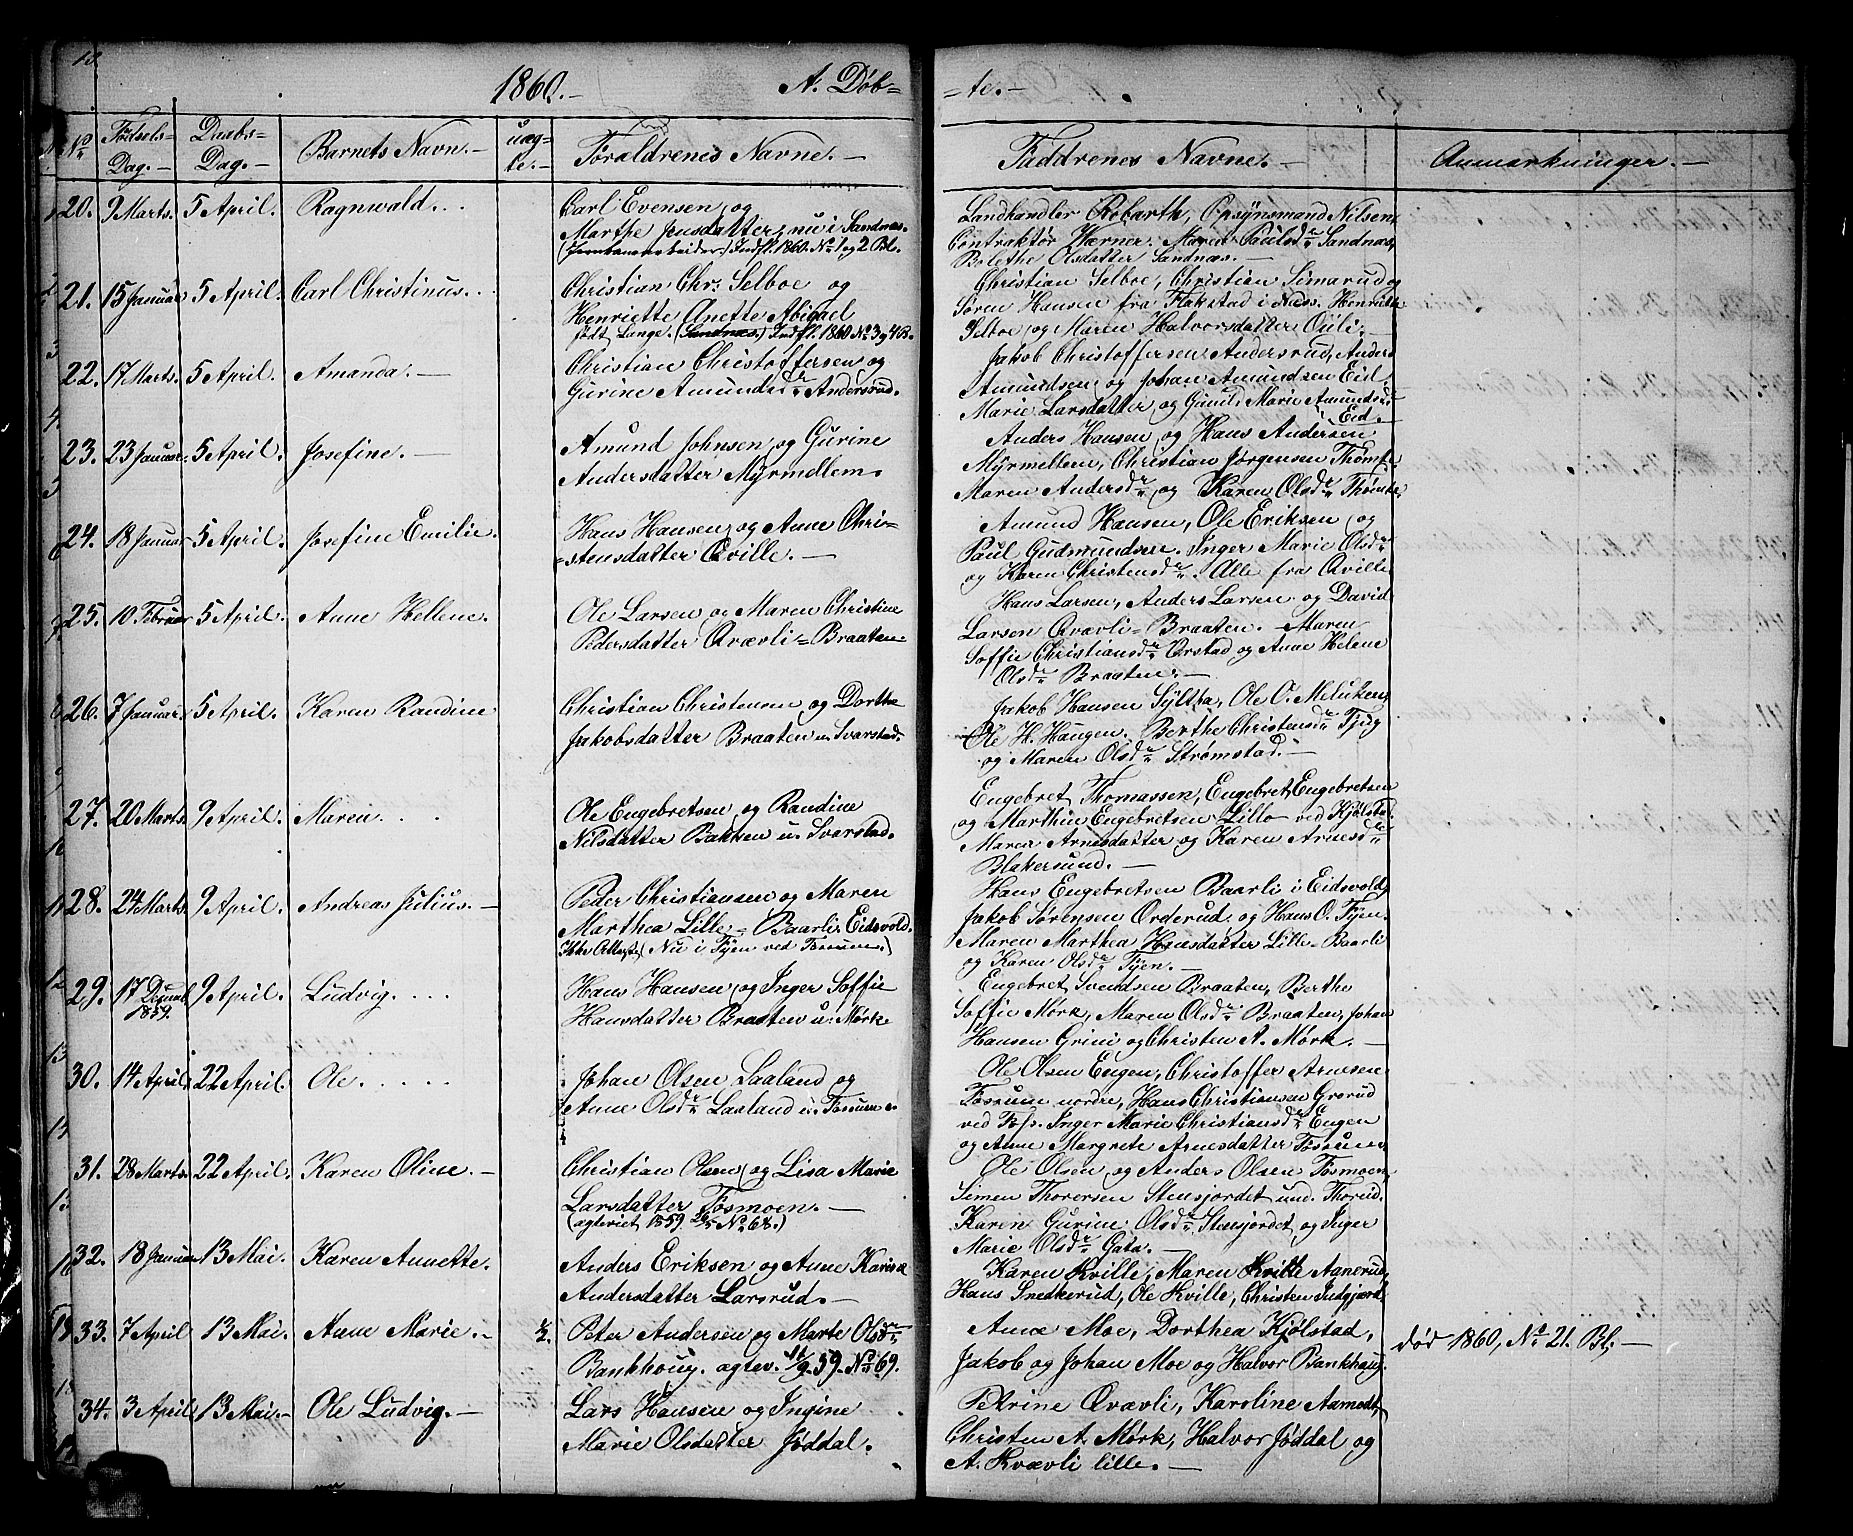 1860.— A. Døb=
=te.—
No Fødsels=Dag.— Daabs=Dag.— Barnets Navn.— uæg=te.— Forældrenes Navne.— Faddrenes Navne.— Anmærkninger.—
20. 9 Marts. 5 April. Ragnwald...
Carl Evensen og
Marthe Jensdatter, nu i Sandnæs.
(Jernbanearbeider.) Indfl. 1860 No 1 og 2 Bl.
Landhandler Robarth, Opsynsmand Nilsen,
Contraktør Wærner. Maren Paulsdr Sandnæs,
Bolethe Olsdatter Sandnæs.—
21. 15 Januar 5 April. Carl Christinus...
Christian Chr. Selboe og
Henriette Anette Abigael
født Lange. (Sandnæs.) Indfl. 1860 No 3 og 4 Bl.
Christian Selboe, Christian Simarud og
Søren Hansen fra Flakstad i Næss. Henriette
Selboe og Maren Halvorsdatter Ouli.—
22. 17 Marts. 5 April. Amanda.—
Christian Christoffersen og
Gurine Amundsdr Andersrud.
Jakob Christoffersen Andersrud, Anders
Amundsen og Johan Amundsen Eid,
Marie Larsdatter og Gunild Marie Amundsdr
Eid.—
23. 23 Januar. 5 April. Josefine.—
Amund Johnsen og Gurine
Andersdatter Myrmellem.
Anders Hansen og Hans Andersen
Myrmellem, Christian Jørgensen Thømte
Maren Andersdr og Karen Olsdr Thømte.
24. 18 Januar 5 April. Josefine Emilie.
Hans Hansen og Anne Chri=
=stensdatter Qville.—
Amund Hansen, Ole Eriksen og
Paul Gudmundsen. Inger Marie Olsdr
og Karen Christensdr. Alle fra Qville
25. 10 Februar 5 April. Anne Hellene.
Ole Larsen og Maren Christine
Pedersdatter Qvævli=Braaten.
Hans Larsen, Anders Larsen og David
Larsen Qvævli=Braaten.—Maren
Soffie Christiansdr Ørstad og Anne Helene
Olsdr Braaten.—
26. 7 Januar. 5 April. Karen Randine
Christian Christensen og Dorthe
Jakobsdatter Braaten u. Svarstad.
Jakob Hansen Syltha, Ole O.
Ole H. Haugen. Berthe Christensdr Tjug
og Maren Olsdr Strømstad.—
27. 20 Marts. 9 April. Maren...
Ole Engebretsen og Randine
Nilsdatter Bakken u. Svarstad.
Engebret Thomassen, Engebret Engebretsen
og Marthin Engebretsen Lillo ved Kjølstad.
Maren Arnesdatter og Karen Arnesdr
Blakersund.—
28. 24 Marts. 9 April. Andreas Julius.—
Peder Christiansen og Maren
Marthea Lille=Baarli. Eidsvold.
Ikke Attester (Nu i Tyen ved Fossum.)
Hans Engebretsen Baarli i Eidsvold,
Jakob Sørensen Orderud og Hans O. Tyen.
Maren Marthea Hansdatter Lille=Baarli
og Karen Olsdr Tyen.—
29. 17 Decembr 1859. 9 April. Ludvig....
Hans Hansen og Inger Soffie
Hansdatter Braaten u. Mørk
Engebret Svendsen Braaten, Berthe
Soffie Mørk, Maren Olsdr Braaten, Johan
Hansen Grini og Christen A. Mørk.—
30. 14 April. 22 April. Ole.....
Johan Olsen Laaland og
Anne Olsdr Laaland u. Fossum.
Ole Olsen Engen, Christoffer Arnesen
Fossum nordre, Hans Christiansen Grorud
ved Fos. Inger Marie Christiansdr Engen
og Anne Margrete Arnesdatter Fossum.
31. 28 Marts. 22 April. Karen Oline.—
Christian Olsen og Lisa Marie
Larsdatter Fosmoen.—
(ægteviet 1859 26/5 No 62.)
Ole Olsen og Anders Olsen Fosmoen,
Simen Thoversen Stensjordet und. Thorud.
Karen Gurine Olsdr Stensjordet og Inger
Marie Olsdr Gata.—
32. 18 Januar 13 Mai. Karen Annette.
Anders Eriksen og Anne Karine
Andersdatter Larsrud.—
Karen Kville, Maren Kville Aanerud,
Hans Snedkerud, Ole Kville, Christen Indgjærdt
33. 7 April 13 Mai. Anne Marie.— ½.
Peter Andersen og Marte Olsdr
Bankhoug. ægtev. 11/9. 59. No 69.
Anne Moe, Dorthea Kjølstad,
Jakob og Johan Moe og Halvor Bankhaug.
død 1860, No 21. Bl.—
34. 3 April 13 Mai.— Ole Ludvig.—
Lars Hansen og Ingine
Marie Olsdatter Jøddal.
Petrine Qvævli, Karoline Aamodt,
Christen A. Mørk, Halvor Jøddal og
A. Kvævli lille.—